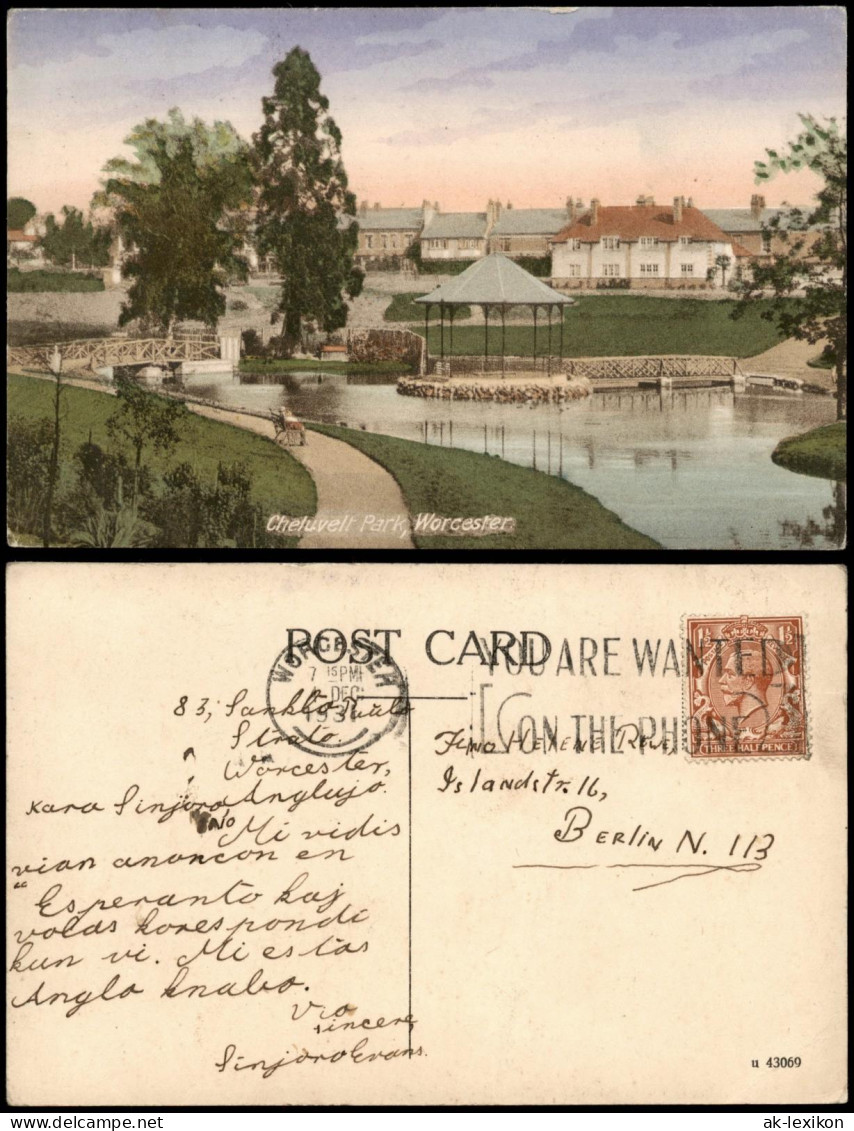 Cheluvelt Park, Worcester
POST CARD
WORCESTER
7 15 PM
DEC
YOU ARE WANTED
ON THE PHONE
THREE HALF PENCE
83, Sankto
Strato.
Worcester,
Anglujo.
Kara Sinjoro
Mi vidis
vian anoncon en
"Esperanto kaj
volas korespondi
kun vi. Mi estas
Anglo knabo.
Via
sincere,
Sinjoro Evans.
Helene
Islandstr. 16,
Berlin N. 113
u 43069
www.ak-ansichtskarten.de
ak-lexikon